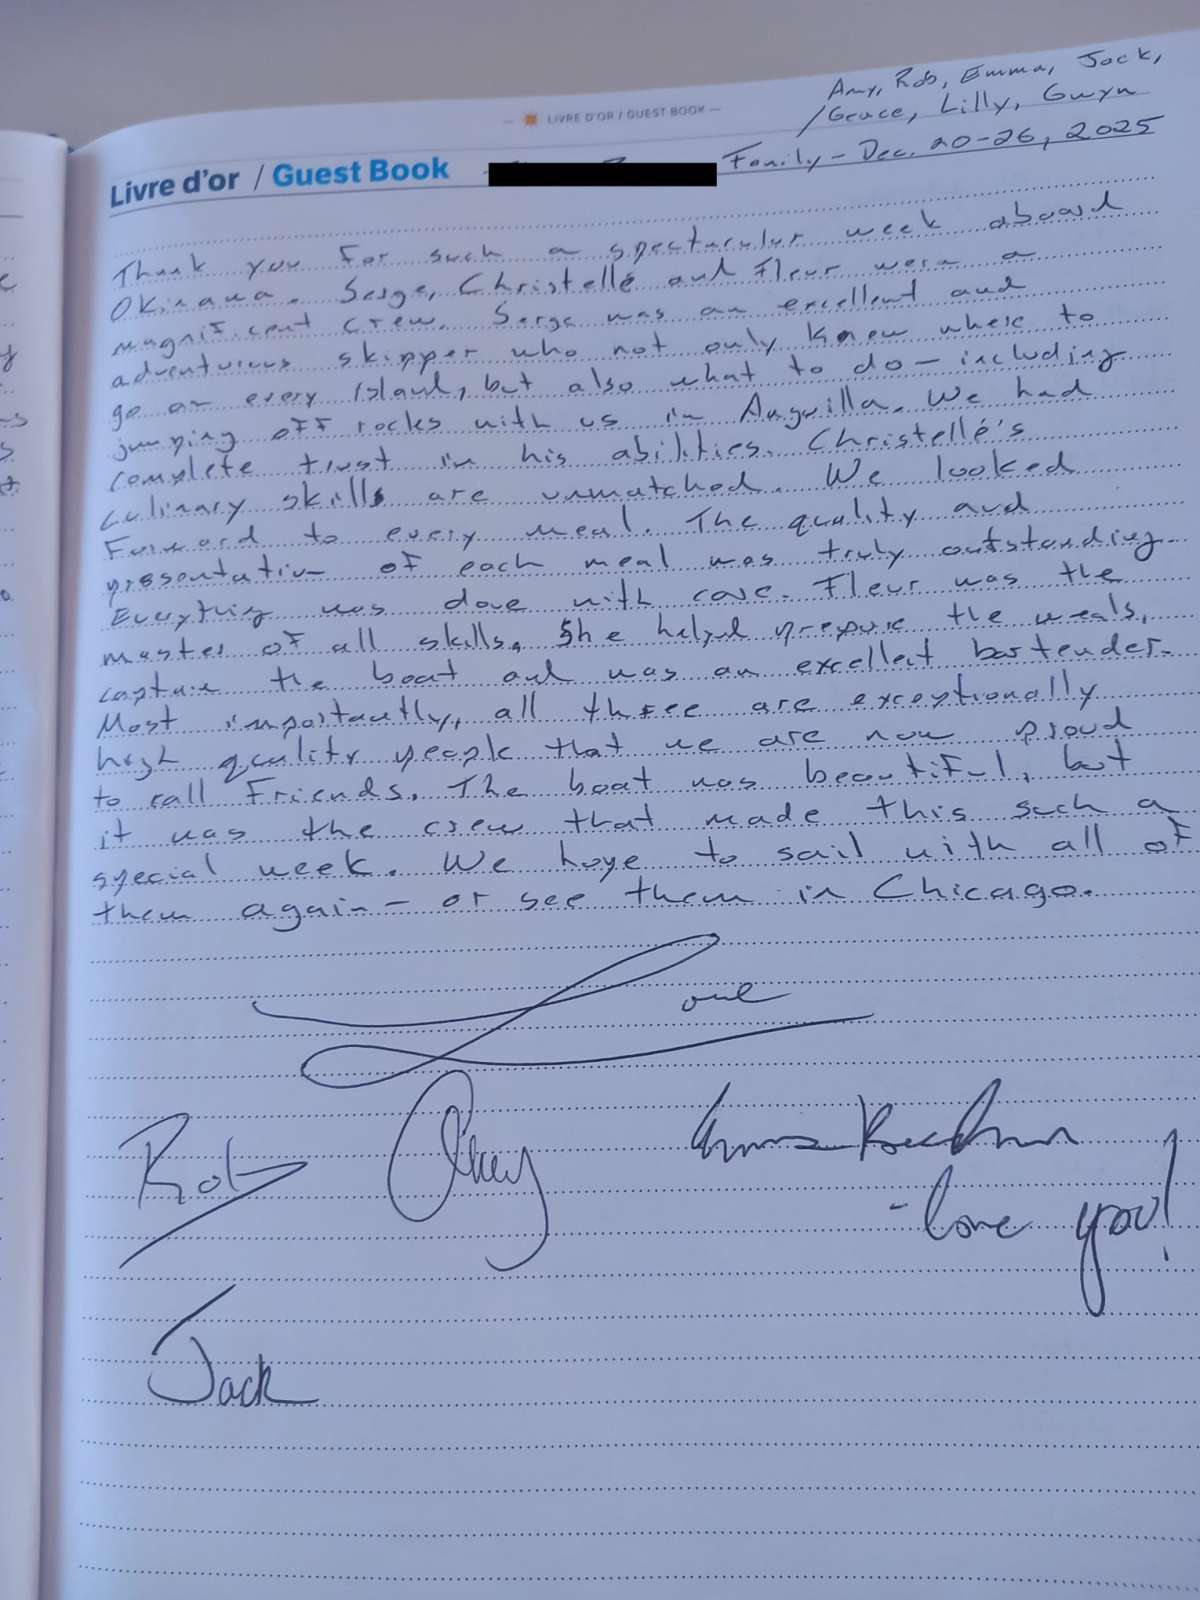 LIVRE D'OR / GUEST BOOK
Amy, Rob, Emma, Jack,
/Grace, Lilly, Gwyn
Livre d'or / Guest Book
Family - Dec. 20-26, 2025
Thank you for such a spectacular week aboard
Okinawa. Serge, Christellé and Fleur were a
magnificent crew. Serge was an excellent and
adventurous skipper who not only knew where to
go on every island, but also what to do - including
jumping off rocks with us in Anguilla. We had
complete trust in his abilities. Christellé's
culinary skills are unmatched. We looked
forward to every meal. The quality and
presentation of each meal was truly outstanding.
Everything was done with care. Fleur was the
master of all skills. She helped prepare the meals,
captain the boat and was an excellent bartender.
Most importantly, all three are exceptionally
high quality people that we are now proud
to call friends. The boat was beautiful, but
it was the crew that made this such a
special week. We hope to sail with all of
them again - or see them in Chicago.
Love
Rob Amy Emma
- love you!
Jack